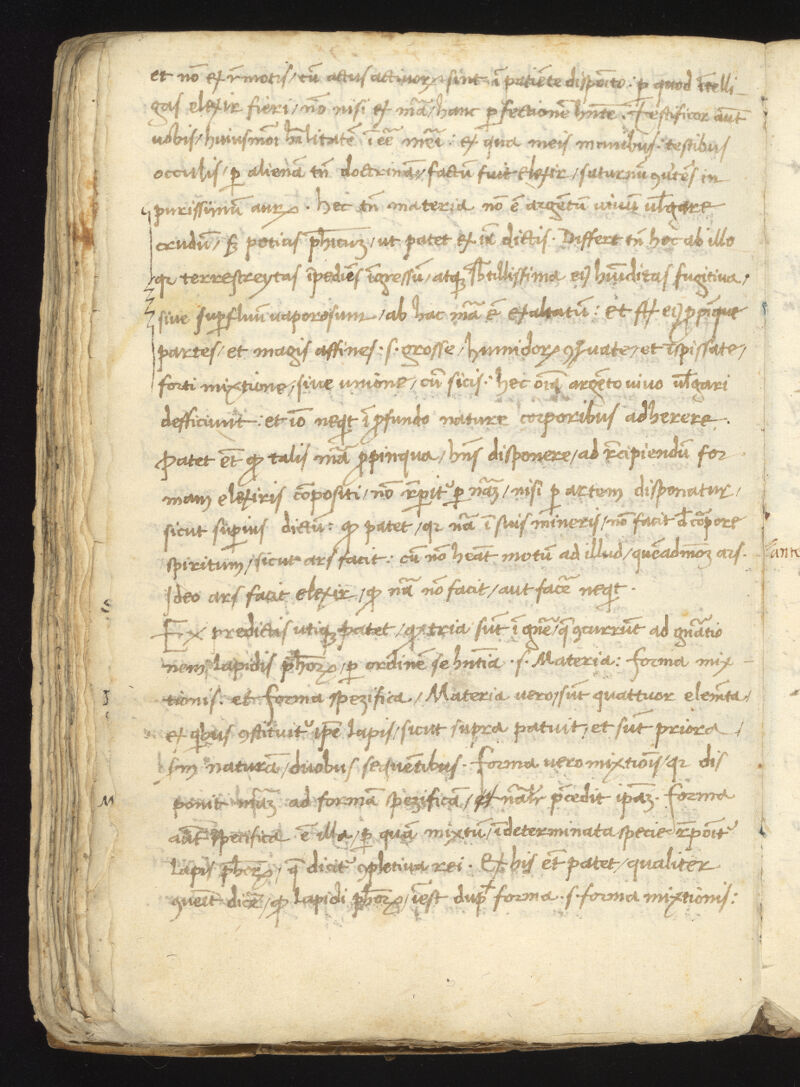 et nõ ex r̃motis / cũ actus activorꝝ sint ĩ patiẽte disposito : p quod ĩtelli
gas elexir fieri / nõ nisi ex mã / hanc perfectionẽ hñte . Testificor aũt
vobis / huiusmõi hãlitatẽ ĩ eẽ
occulis / p alienã tñ doctrinam / factũ fuit elexir / saturnũ ꝯvtẽs in
purissimũ aurꝝ . hec tñ materia nõ ẽ argẽtũ vivũ vl̃gare
crudũ / s̃ potius ph̃icum / ut patet ex iã dictis . Differt tñ hoc ab illo
qr terrestreytas ĩpediẽs ĩgressũ / atqꝫ sb̃tillissima eiꝰ hũiditas fugitiva /
sive supfluũ vaporosum / ab hac mã ẽ exaltatũ : et
partes / et magis affines : s . grosse / humidorꝝ ꝯs̃vate / et ĩspissate /
forti mixtione / sive unione / cũ sicis . hec oĩa argẽto vivo vl̃gari
defficiunt : et iõ neqt ĩ ꝓfundo nature corporibus adherere .
Patet et̃ qꝫ talis mã ꝓpinqua / hñs disponere / ad r̃cipiendũ for
mam elexiris cõpositi / nõ r̃perit p nãm / nisi p artem disponatur /
sicut supius dictũ : qꝫ patet / qr nã ĩ suis mineris / nõ facit d̃ corpore
spiritum / sicut ars facit : cũ nõ heãt motũ ad illud / queãdmoꝫ ars .
Ideo ars facit elexir / qꝫ nã nõ facit / aut facẽ neqt .
Ex predictis utiqꝫ patet / qꝫ tria sũt ĩ gñe / q̃ ꝯcurrũt ad gñatio
nem lapidis ph̃orꝝ / p ordinẽ se hñtia . s . Materia : forma mix
tionis . et forma spezifica / Materia vero / sũt quattuor elemẽta /
ex qbus ꝯstituit ip̃e lapis / sicut supra patuit / et sũt priora /
sm̃ naturã / duobus sequẽtibus . forma vero mixtiois / qr dis
ponit mãm ad formã spezificã / nãlr p̃cedit ipãm . forma
aũt specifica ẽ illa / p quã mixtũ / ĩdeterminata specie r̃ponit
lapis ph̃orꝝ / q̃ dicit ꝯpletiva rei . Ex his et̃ patet / qualiter
ꝯveit dicẽ / qꝫ lapidi ph̃orꝝ / ĩest dupl̃ forma . s . forma mixtionis :